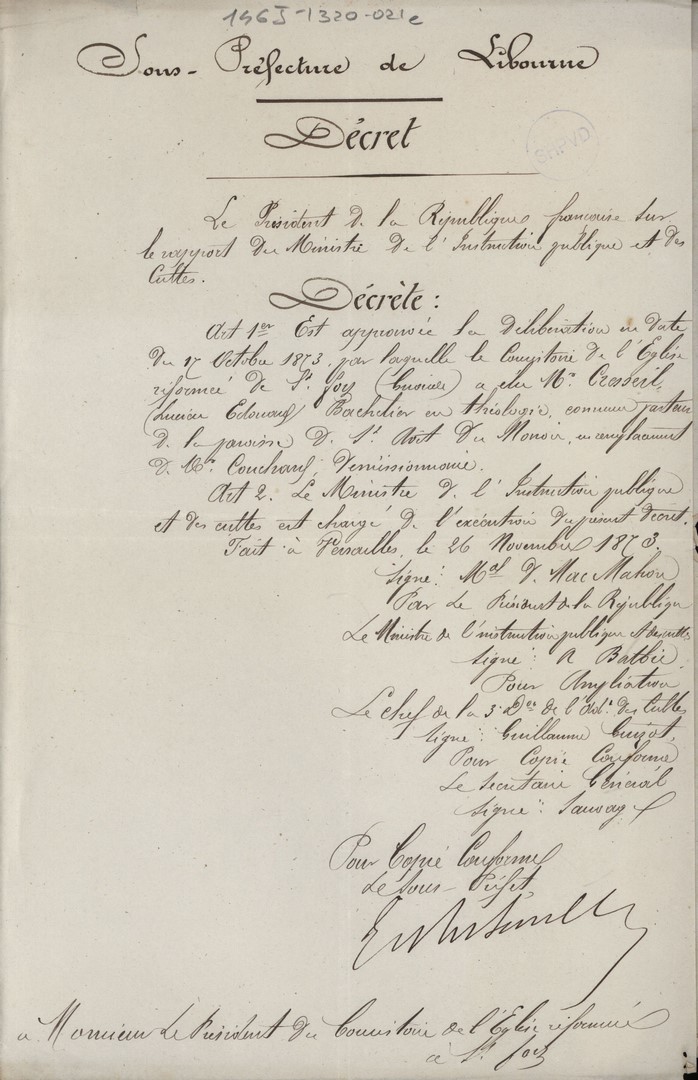 146J-1320-021e
Sous-Préfecture de Libourne
Décret
SHPVD
Le Président de la République française sur
le rapport du Ministre de l'Instruction publique et des
Cultes.
Décrète :
Art 1er Est approuvée la délibération en date
du 17 Octobre 1873, par laquelle le Consistoire de l'Eglise
réformée de Ste foy (Gironde) a élu Mr. Cresseil,
(Lucien Edouard) Bachelier en théologie, comme pasteur
de la paroisse de St. Avit du Moiron, en remplacement
de Mr. Couchaud, démissionnaire.
Art 2. Le Ministre de l'Instruction publique
et des cultes est chargé de l'exécution du présent décret.
Fait à Versailles, le 26 Novembre 1873.
Signé : Mal de Mac Mahon
Par Le Président de la République
Le Ministre de l'instruction publique et des cultes
Signé : A Batbie
Pour Ampliation
Le chef de la 3e Don de l'Adon des Cultes
Signé : Guillaume Guizot,
Pour Copie Conforme
Le Secrétaire Général
Signé : Sauvage
Pour Copie Conforme
Le Sous-Préfet,
a Monsieur Le Président du Consistoire de l'Eglise réformée
à Ste foy